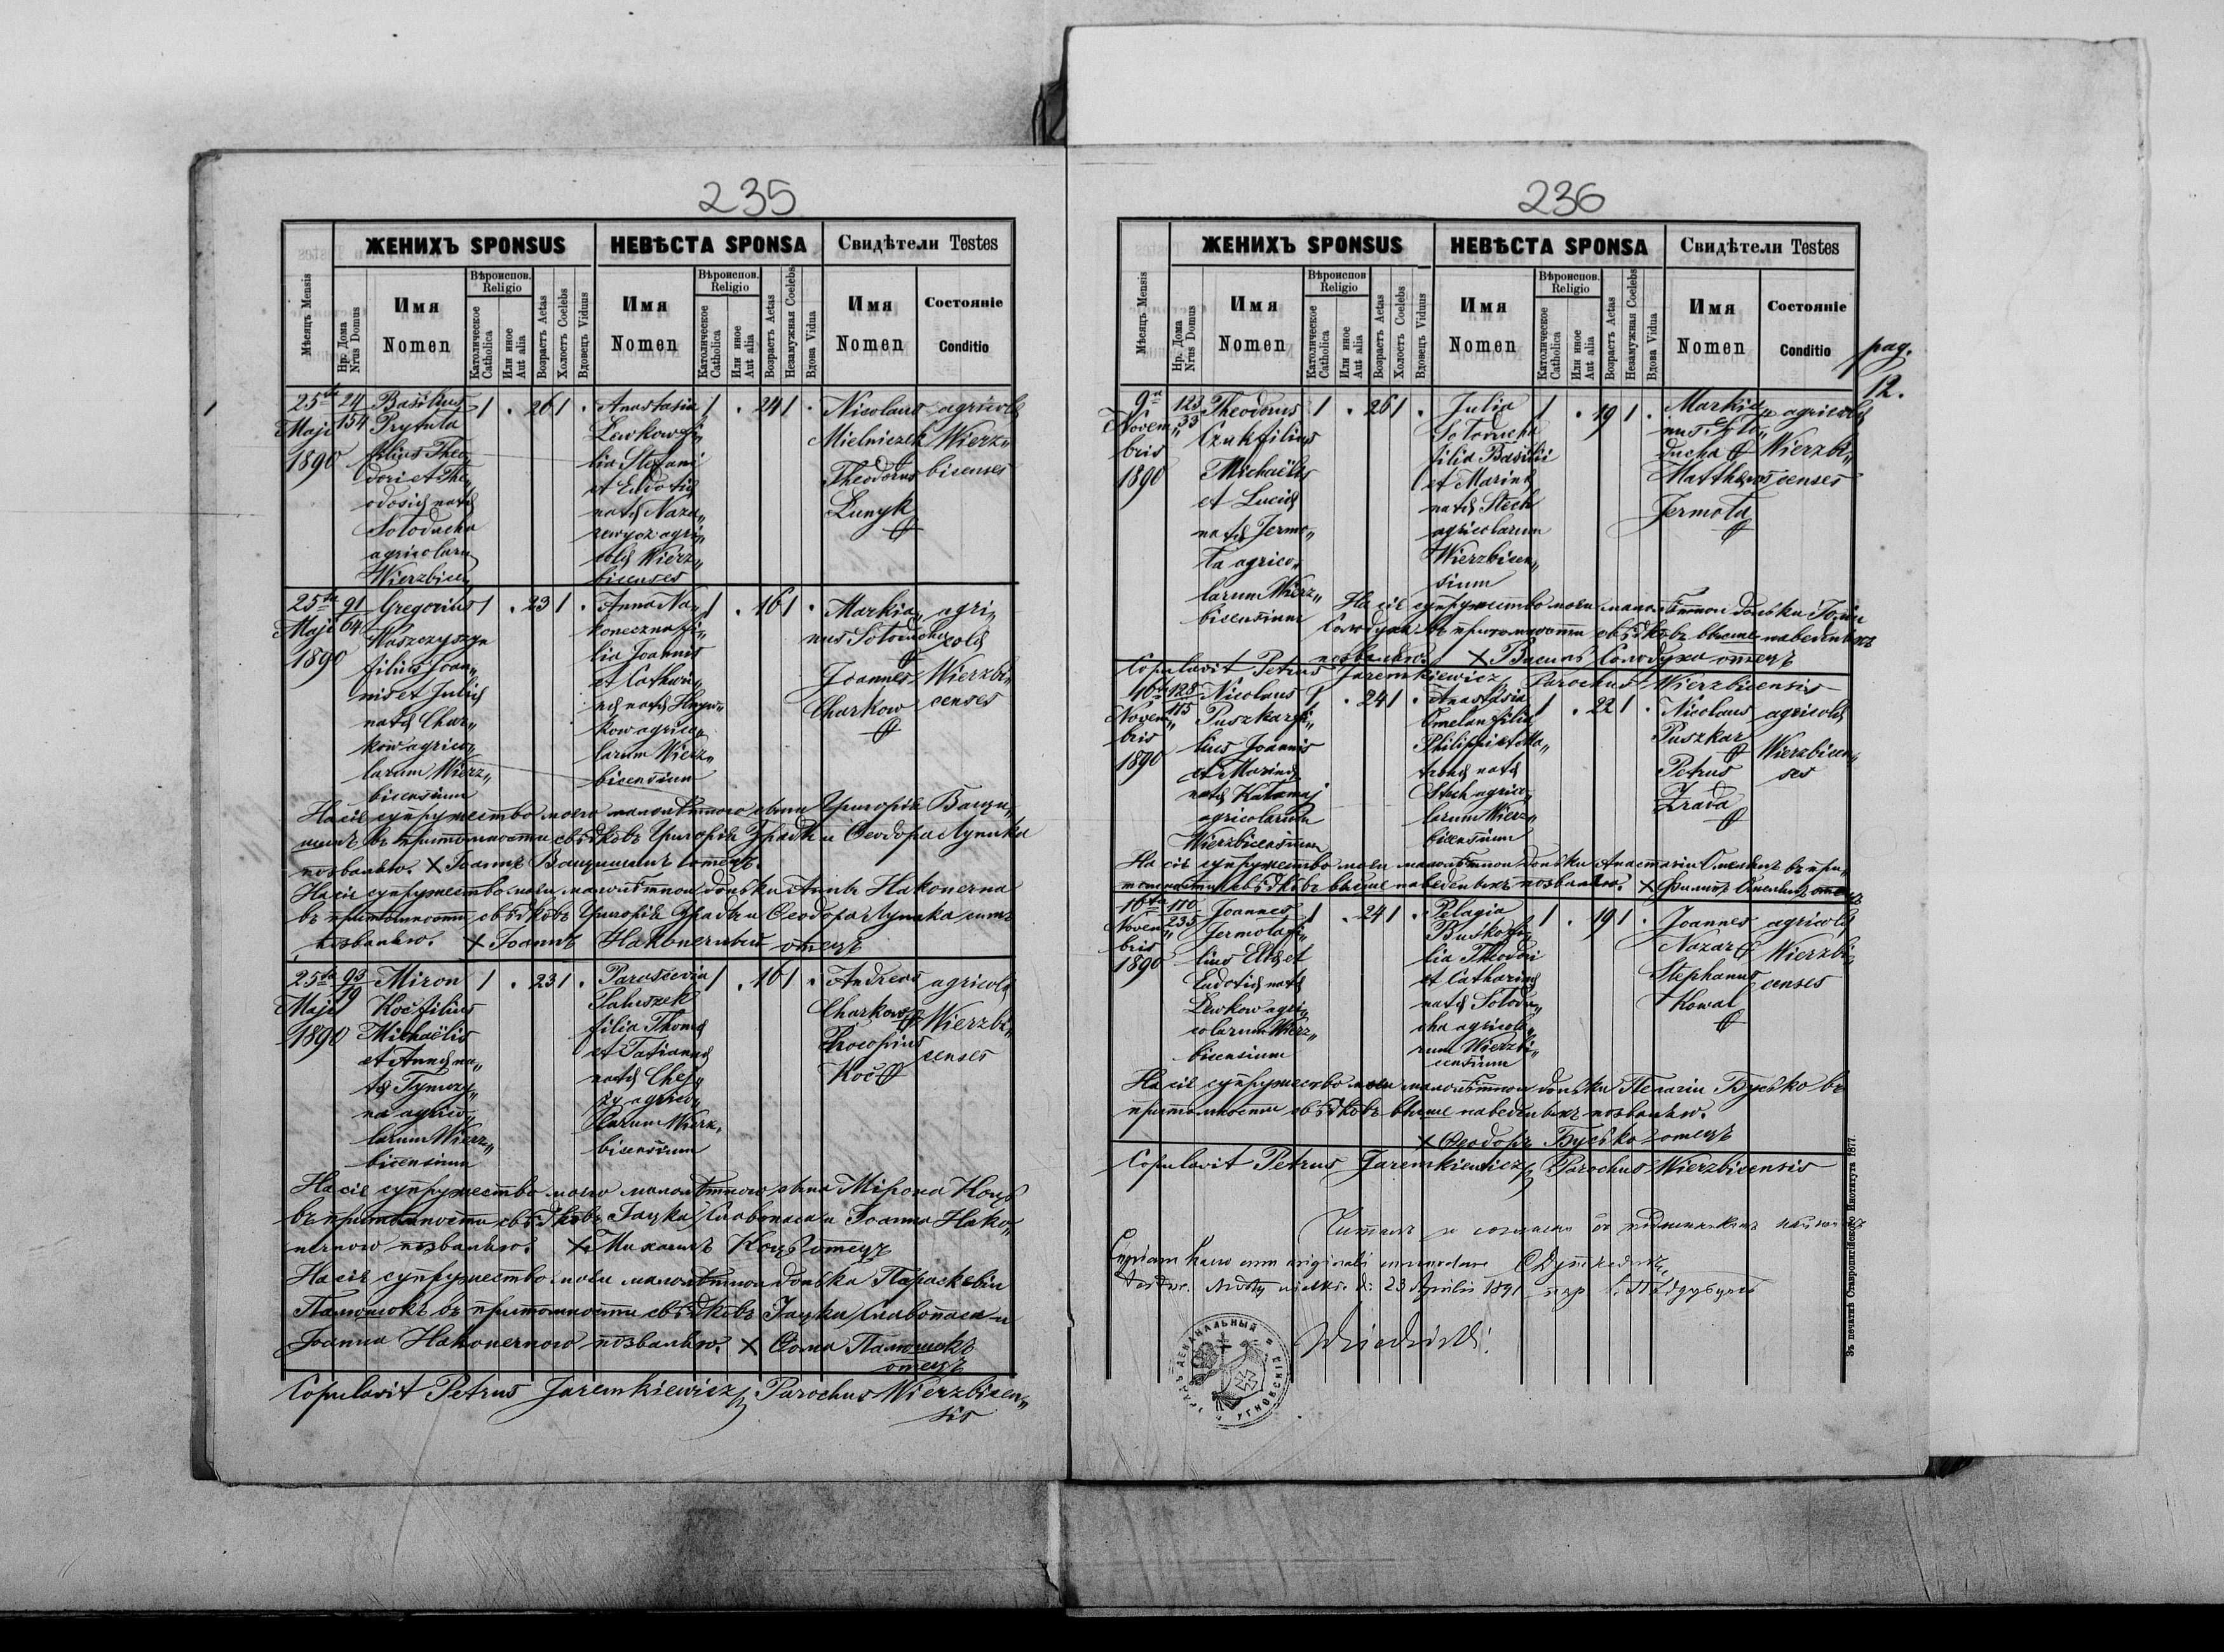 235
ЖЕНИХЪ SPONSUS НЕВѢСТА SPONSA Свидѣтели Testes
Мѣсяцъ Mensis
Нр. Дома Nrus Domus
Имя Nomen
Вѣроиспов. Religio
Католическое Catholica
Или иное Aut alia
Возрастъ Aetas
Холостъ Coelebs
Вдовецъ Viduus
Имя Nomen
Вѣроиспов. Religio
Католическое Catholica
Или иное Aut alia
Возрастъ Aetas
Незамужная Coelebs
Вдова Vidua
Имя Nomen
Состоянiе Conditio
25ta Maji 1890
24
154
Basilius
Prytuła
filius Theo„
dori et The„
odosiæ natæ
Sołoducha
agricolaru
Wierzbicen
1 . 26 1 .
Anastasia
Lewkow fi„
lia Stefani
et Eudotiæ
natæ Naza„
rewycz agri„
colæ Wierz„
bicenses
1 . 24 1 .
Nicolaus
Mielniczek
Theodorus
Łunyk
agricolæ
Wierz„
bicenses
25ta Maji 1890
91
64
Gregorius
Waszczyszyn
filius Joan„
nis et Juliæ
natæ Char„
kow agrico„
larum Wierz„
bicensium
1 . 23 1 .
Anna Na„
koneczna fi„
lia Joannis
et Cathari„
næ natæ
kow agrico„
larum Wierz„
bicensium
1 . 16 1 .
Markia„
nus Sołoducha
Joannes
Charkow
agri„
colæ
Wierzbi„
censes
На сіе супружество моего малолѣтного сына Григорія Ващи„
шинъ въ притомности свѣдковъ Григорія Зрады и Ѳеодора Луника
позваляю. × Іоаннъ Ващишинъ отецъ.
На сіе супружество моеи малолѣтнои доньки Анны Наконечна
въ притомности свѣдковъ Григорія Зрады и Ѳеодора Луника
позваляю. × Іоаннъ Наконечный отецъ
25ta Maji 1890
93
19
Miron
Koć filius
Michaëlis
et Annæ na„
tæ Tymczy„
na agrico„
larum Wierz„
bicensium
1 . 23 1 .
Parascevia
Paluszek
filia Thomæ
et Tatiannæ
natæ Chej„
zy agrico„
larum Wierz„
bicensium
1 . 16 1 .
Andreas
Charkow
Procopius
Koć
agricolæ
Wierzbi„
censes
На сіе супружество моего малолѣтного сына Мирона Коць
въ притомности свѣдковъ Гацка Слабопаса и Іоанна Нако„
нечного позваляю. × Михаилъ Коць отецъ
На сіе супружество моеи малолѣтнои доньки Параскевіи
Палюшокъ въ притомности свѣдковъ Гацка Слабопаса и
Іоанна Наконечного позваляю. × Ѳома Палюшокъ
отецъ
Copulavit Petrus Jaremkiewicz Parochus Wierzbicen„
sis
236
ЖЕНИХЪ SPONSUS НЕВѢСТА SPONSA Свидѣтели Testes
Мѣсяцъ Mensis
Нр. Дома Nrus Domus
Имя Nomen
Вѣроиспов Religio
Католическое Catholica
Или иное Aut alia
Возрастъ Aetas
Холостъ Coelebs
Вдовецъ Viduus
Имя Nomen
Вѣроиспов. Religio
Католическое Catholica
Или иное Aut alia
Возрастъ Aetas
Незамужная Coelebs
Вдова Vidua
Имя Nomen
Состоянiе Conditio
pag.
12.
9na Novem„bris 1890
123
33
Theodorus
Czuk filius
Michaëlis
et Luciæ
natæ Jermo„
ła agrico„
larum Wierz„
bicensium
1 . 26 1 .
Julia
Sołoducha
filia Basilii
et Marinæ
natæ Stech
agricolarum
Wierzbicen„
sium
1 . 19 1 .
Markia„
nus Soło„
ducha
Mattheus
Jermoła
agricolæ
Wierzbi„
censes
На сіе супружество моеи малолѣтнои доньки Юліи
Солодуха въ притомности свѣдковъ выше наведеныхъ
позваляю. × Василь Солодуха отецъ
Copulavit Petrus Jaremkiewicz Parochus Wierzbicensis
10ta Novem„bris 1890
128
115
Nicolaus
Puszkar fi„
lius Joannis
et Marinæ
natæ Kałamaj
agricolarum
Wierzbicensium
1 . 24 1 .
Anastasia
Omelan filia
Philippi et Ma„
tronæ natæ
Stech agrico„
larum Wierz„
bicensium
1 . 22 1 .
Nicolaus
Puszkar
Petrus
Zrada
agricolæ
Wierzbicen„
ses
На сіе супружество моеи малолѣтнои доньки Анастазіи Омелянъ въ при„
томности свѣдковъ выше наведеныхъ позваляю. × Филипъ Омелянъ отецъ
16ta Novem„bris 1890
110
235
Joannes
Jermoła fi„
lius Eliæ et
Eudotiæ natæ
Lewkow agri„
colarum Wierz„
bicensium
1 . 24 1 .
Pelagia
Buśko fi„
lia Theodori
et Catharinæ
natæ Sołodu„
cha agricola„
rum Wierzbi„
censium
1 . 19 1 .
Joannes
Nazar
Stephanus
Kowal
agricolæ
Wierzbi„
censes
На сіе супружество моеи малолѣтнои доньки Пелагіи Бусько въ
притомности свѣдковъ выше наведеныхъ позваляю.
× Ѳеодоръ Бусько отецъ
Copulavit Petrus Jaremkiewicz Parochus Wierzbicensis
Copiam hanc cum originali
23 Aprilis 1891
Зъ печатнѣ Ставропигійского Института 1877.